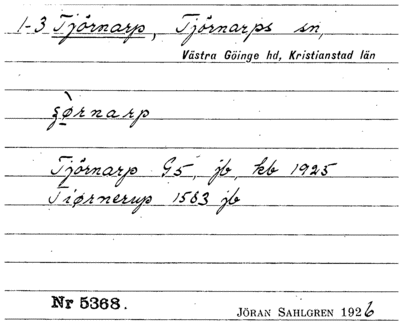 1-3 Tjörnarp, Tjörnarps sn,
Västra Göinge hd, Kristianstad län
ʒø̀rnarp
Tjörnarp G5, jb, kb 1925
Tiørnerup 1583 jb
Nr 5368.
JÖRAN SAHLGREN 1926